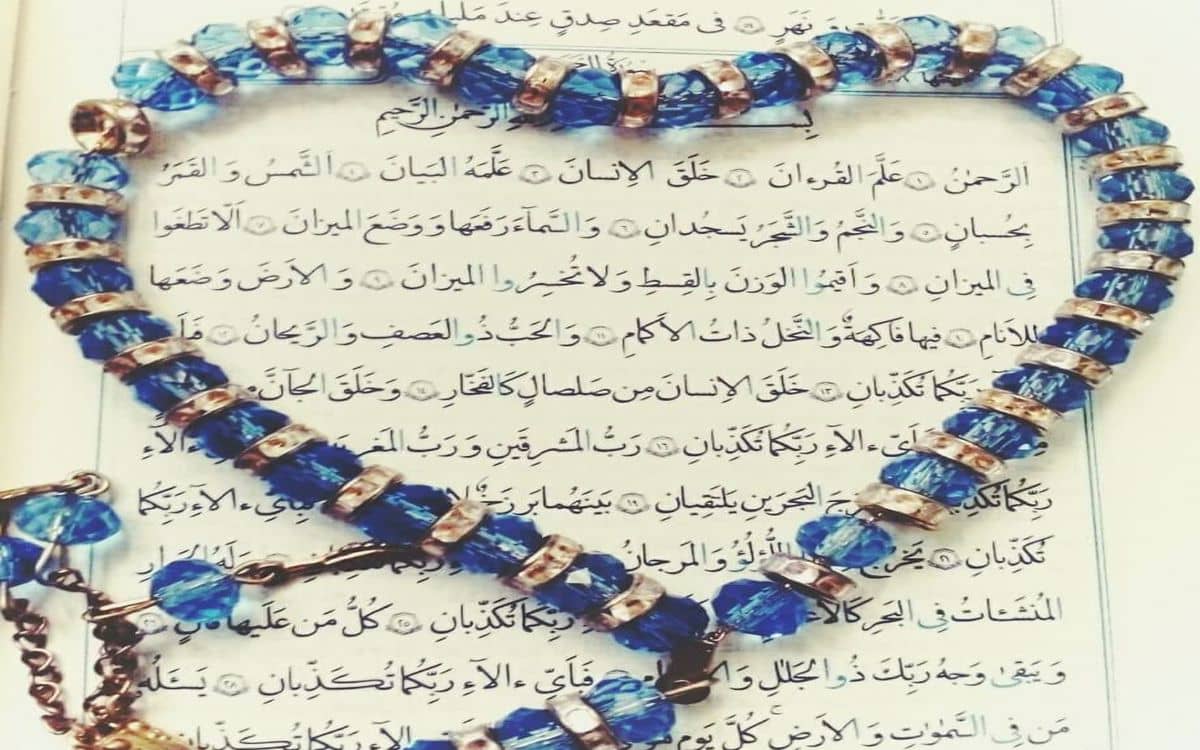 وَنَهَرٍ ﴿٥٤﴾ فى مَقعَدِ صِدقٍ عِندَ مَليكٍ
الرَّحمٰنِ الرَّحيمِ
الرَّحمٰنُ ﴿١﴾ عَلَّمَ القُرءانَ ﴿٢﴾ خَلَقَ الإِنسانَ ﴿٣﴾ عَلَّمَهُ البَيانَ ﴿٤﴾ الشَّمسُ وَالقَمَرُ
بِحُسبانٍ ﴿٥﴾ وَالنَّجمُ وَالشَّجَرُ يَسجُدانِ ﴿٦﴾ وَالسَّماءَ رَفَعَها وَوَضَعَ الميزانَ ﴿٧﴾ أَلّا تَطغَوا
فِى الميزانِ ﴿٨﴾ وَأَقيمُوا الوَزنَ بِالقِسطِ وَلا تُخسِرُوا الميزانَ ﴿٩﴾ وَالأَرضَ وَضَعَها
لِلأَنامِ ﴿١٠﴾ فيها فاكِهَةٌ وَالنَّخلُ ذاتُ الأَكمامِ ﴿١١﴾ وَالحَبُّ ذُو العَصفِ وَالرَّيحانُ ﴿١٢﴾
رَبِّكُما تُكَذِّبانِ ﴿١٣﴾ خَلَقَ الإِنسانَ مِن صَلصالٍ كَالفَخّارِ ﴿١٤﴾ وَخَلَقَ الجانَّ
ءالاءِ رَبِّكُما تُكَذِّبانِ ﴿١٦﴾ رَبُّ المَشرِقَينِ وَرَبُّ
رَبِّكُما البَحرَينِ يَلتَقِيانِ ﴿١٩﴾ بَينَهُما بَرزَخٌ ءالاءِ رَبِّكُما
تُكَذِّبانِ ﴿٢١﴾ يَخرُجُ اللُّؤلُؤُ وَالمَرجانُ
المُنشَـٔاتُ فِى البَحرِ رَبِّكُما تُكَذِّبانِ ﴿٢٥﴾ كُلُّ مَن عَلَيها
وَيَبقىٰ وَجهُ رَبِّكَ ذُو الجَلٰلِ فَبِأَىِّ ءالاءِ رَبِّكُما تُكَذِّبانِ ﴿٢٨﴾ يَسـَٔلُهُ
مَن فِى السَّمٰوٰتِ وَالأَرضِ كُلَّ يَومٍ ءالاءِ رَبِّكُما تُكَذِّبانِ